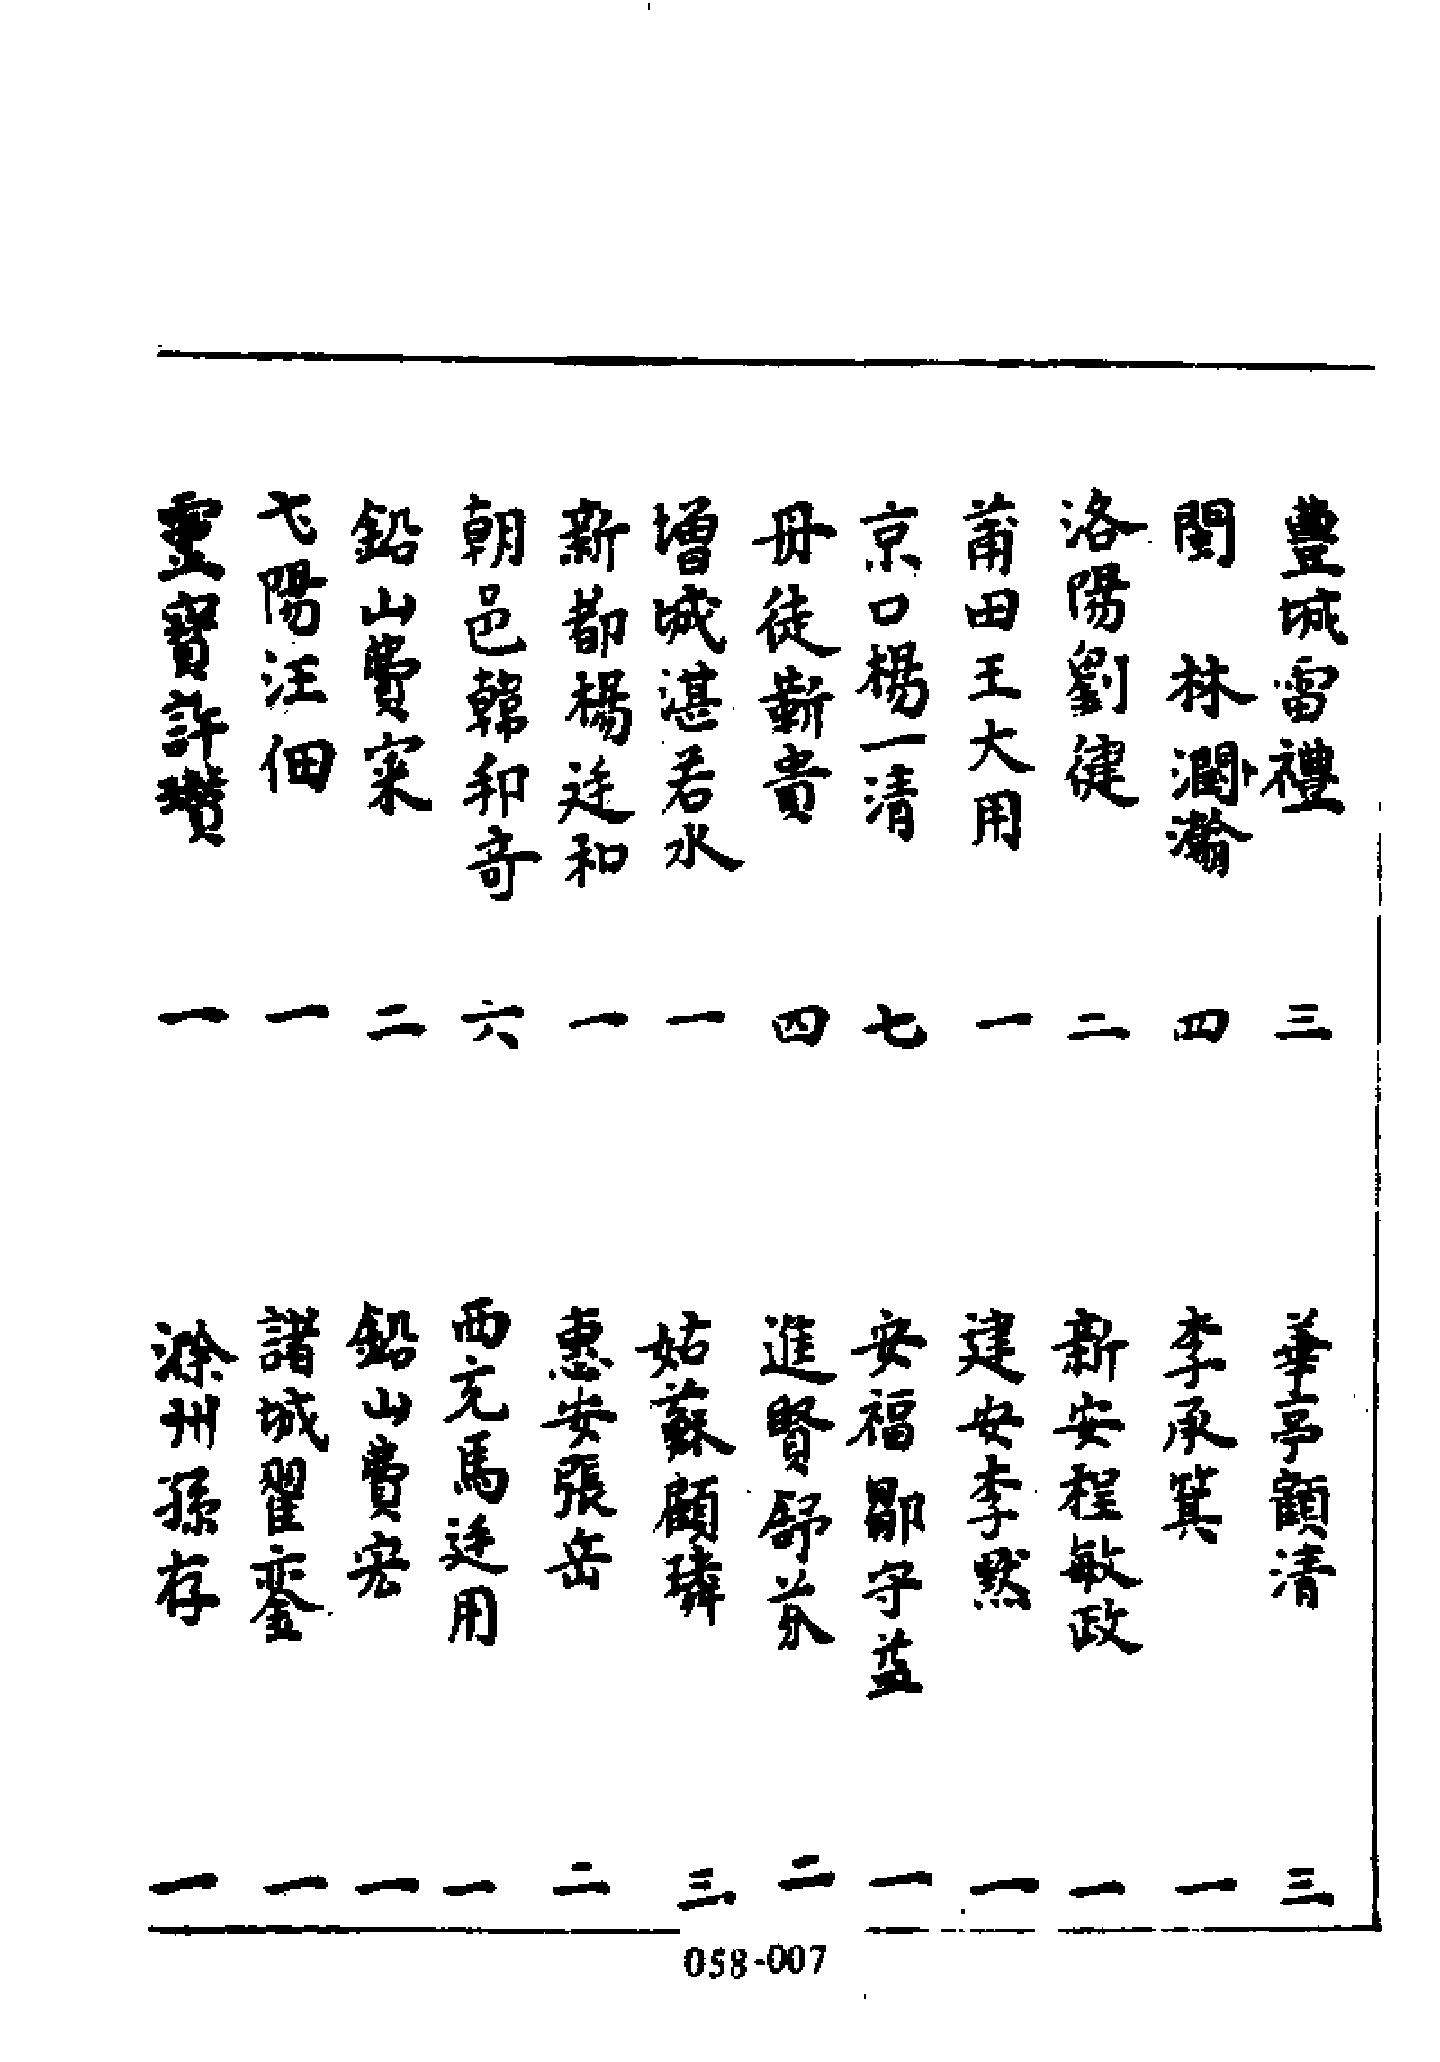 豐城雷禮 三 華亭顧清 三
閩 林瀾瀚 四 李承箕 一
洛陽劉健 二 新安程敏政 一
莆田王大用 一 建安李默 一
京口楊一清 七 安福鄒守益 一
丹徒靳貴 四 進賢舒芬 二
增城湛若水 一 姑蘇顧璘 三
新都楊廷和 一 惠安張岳 二
朝邑韓邦奇 六 西充馬廷用 一
鉛山費寀 二 鉛山費宏 一
弋陽汪佃 一 諸城翟鑾 一
靈寶許瓚 一 滁州孫存 一
058-007